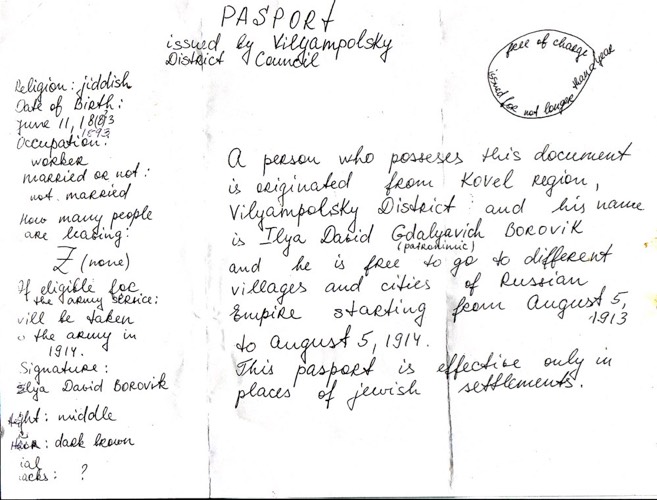 PASPORT
issued by Vilyampolsky
District Council
free of charge
issued for not longer than a year
Religion: jiddish
Date of Birth:
June 11, 1893
1893
Occupation:
worker
married or not:
not married
How many people
are leaving:
Z (none)
If eligible for
the army service:
vill be taken
the army in
1914.
Signature:
Ilya David BOROVIK
ight: middle
Hair: dark brown
ial
acks: ?
A person who posseses this document
is originated from Kovel region,
Vilyampolsky District and his name
is Ilya David Gdalyavich BOROVIK
(patronimic)
and he is free to go to different
villages and cities of Russian
Empire starting from August 5,
1913
to August 5, 1914.
This pasport is effective only in
places of jewish settlements.